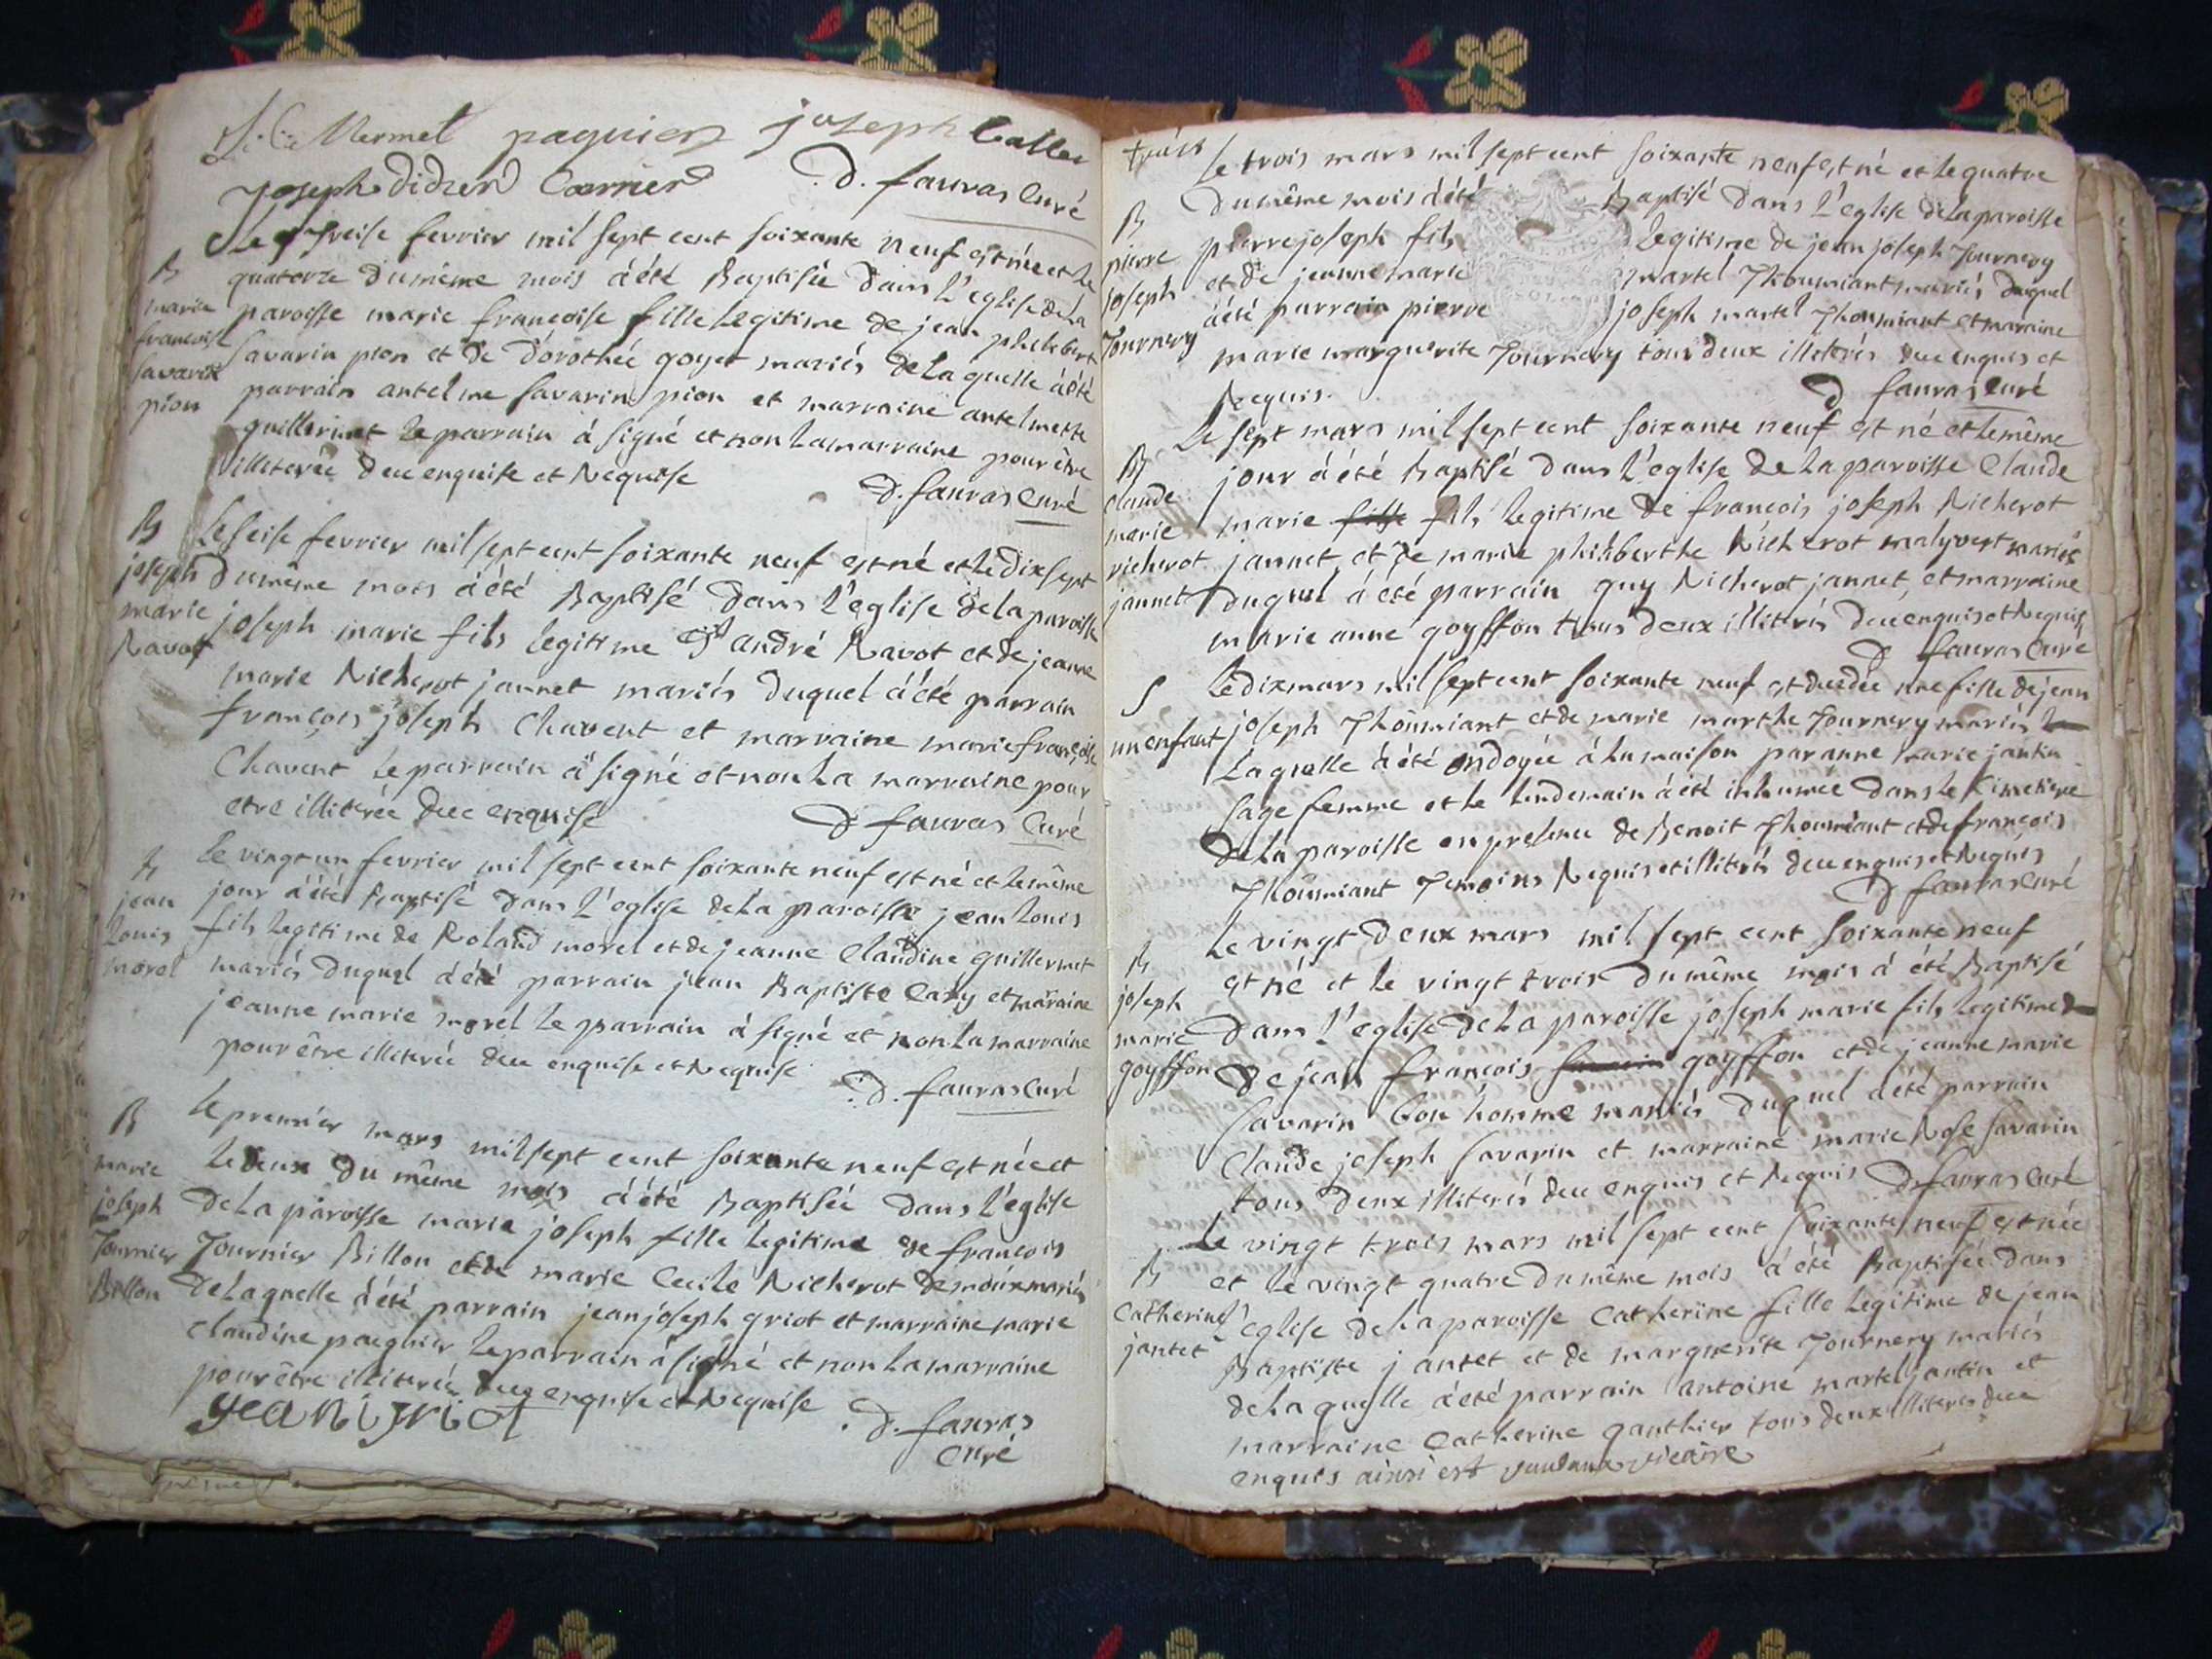 Mermet paquier joseph Caller
Joseph didier Carrier D. fauras Curé
Le treise fevrier mil sept cent soixante neuf est née et le
B
marie
francoise
savarin
pion
quatorze du même mois à été Baptisée dans l'eglise de la
paroisse marie francoise fille legitime de jean philebert
savarin pion et de dorothée goyet mariés de laquelle à été
parrain antelme savarin pion et marraine antelmette
guillermet le parrain à signé et non la marraine pour être
illiterée deue enquise et Requise
D. fauras Curé
B
joseph
marie
Ravot
Le seise fevrier mil sept cent soixante neuf est né et le dix sept
du même mois à été Baptisé dans l'eglise de la paroisse
joseph marie fils legitime d'andré Ravot et de jeanne
marie Richerot jannet mariés duquel à été parrain
françois joseph Chavent et marraine marie françoise
Chavent le parrain à signé et non la marraine pour
etre illiterée deue enquise
D fauras Curé
B
jean
Louis
morel
le vingt un fevrier mil sept cent soixante neuf est né et le même
jour à été Baptisé dans l'eglise de la paroisse jean Louis
fils legitime de Roland morel et de jeanne Claudine guillermet
mariés duquel à été parrain jean Baptiste Cary et maraine
jeanne marie morel le parrain à signé et non la marraine
pour être illiterée deue enquise et Requise
D. fauras Curé
B
marie
joseph
Tournier
Billon
le premier mars mil sept cent soixante neuf est née et
le deux du même mois à été Baptisée dans l'eglise
de la paroisse marie joseph fille legitime de francois
Tournier Billon et de marie Cecile Richerot demoux mariés
de laquelle à été parrain jean joseph griot et marraine marie
claudine paquier le parrain à signé et non la marraine
pour être illiterée deue enquise et Requise
jean griot
D. fauras
Curé
trois
le trois mars mil sept cent soixante neuf est né et le quatre
B
pierre
joseph
Tournery
du même mois à été Baptisé dans l'eglise de la paroisse
pierre joseph fils legitime de jean joseph Tournery
et de jeanne marie martel Thoumiant mariés duquel
à été parrain pierre joseph martel Thoumiant et maraine
marie marguerite Tournery tous deux illiterés deue enquis et
Requis.
D fauras Curé
B
Claude
marie
richerot
jannet
Le sept mars mil sept cent soixante neuf est né et le même
jour à été Baptisé dans l'eglise de la paroisse Claude
marie fille fils legitime de francois joseph Richerot
jannet et de marie philiberthe Richerot malyvert mariés
duquel à été parrain guy Richerot jannet, et marraine
marie anne goyffon tous deux illiterés deue enquis et Requis
D fauras Curé
S
un enfant
Le dix mars mil sept cent soixante neuf est decedée une fille de jean
joseph Thoumiant et de marie marthe Tournery mariés
Laquelle à été ondoyée à la maison par anne marie jantin
sage femme et le lendemain à été inhumée dans le Cimetiere
de la paroisse en presence de Benoit Thoumiant et de françois
Thoumiant Temoins Requis et illiterés deue enquis et Requis
D fauras Curé
B
joseph
marie
goyffon
Le vingt deux mars mil sept cent soixante neuf
est né et le vingt trois du même mois à été Baptisé
dans l'eglise de la paroisse joseph marie fils legitime
de jean francois goyffon et de jeanne marie
savarin bon homme mariés duquel à été parrain
Claude joseph savarin et marraine marie Rose savarin
tous deux illiterés deue enquis et Requis D fauras Curé
B
Catherine
jantet
Le vingt trois mars mil sept cent soixante neuf est née
et le vingt quatre du même mois à été Baptisée dans
l'eglise de la paroisse Catherine fille legitime de jean
Baptiste jantet et de marguerite Tournery mariés
de laquelle à été parrain antoine martel jantin et
marraine Catherine gauthier tous deux illiterés deue
enquis ainsi est vicaire